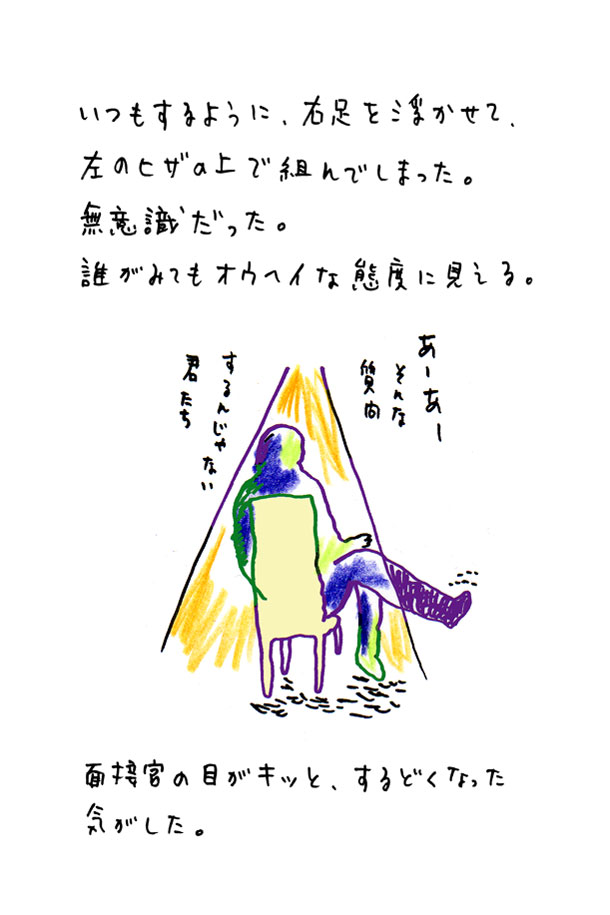 いつもするように、右足を浮かせて、
左のヒザの上で組んでしまった。
無意識だった。
誰がみてもオウヘイな態度に見える。
あーあー
そんな
質問
するんじゃない
君たち
面接官の目がキッと、するどくなった
気がした。